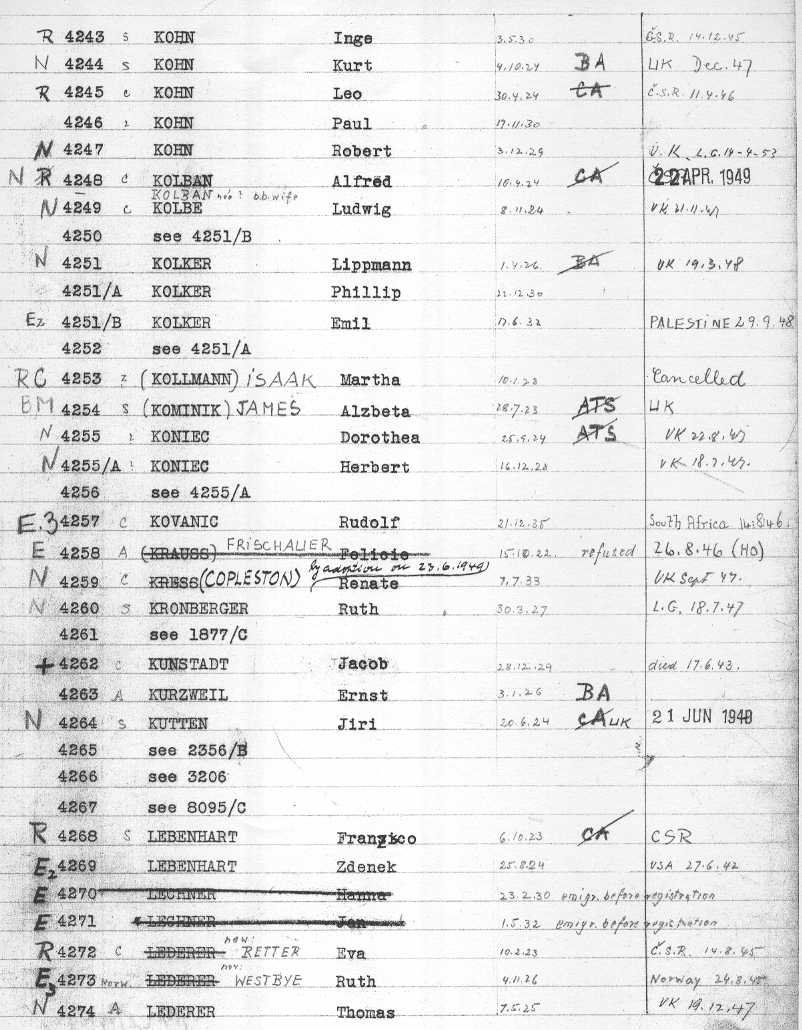 R 4243 s KOHN Inge 3.5.30 Č.S.R. 14.12.45
N 4244 s KOHN Kurt 4.10.24 BA UK Dec. 47
R 4245 c KOHN Leo 30.4.24 CA Č.S.R. 11.4.46
4246 KOHN Paul 17.11.30
N 4247 KOHN Robert 3.12.29 U.K. L.G.14-9-53
N R 4248 c KOLBAN Alfred 10.4.24 CA 22 APR. 1949
KOLBAN née? b.b. wife
N 4249 c KOLBE Ludwig 8.11.24 UK 21.11.47
4250 see 4251/B
N 4251 KOLKER Lippmann 1.4.26 BA UK 19.3.48
4251/A KOLKER Phillip 22.12.30
E2 4251/B KOLKER Emil 17.6.32 PALESTINE 29.9.48
4252 see 4251/A
RC 4253 z (KOLLMANN) ISAAK Martha 10.1.23 Cancelled
BM 4254 S (KOMINIK) JAMES Alzbeta 28.7.23 ATS UK
N 4255 KONIEC Dorothea 25.9.24 ATS UK 22.8.47
N 4255/A KONIEC Herbert 16.12.28 UK 18.7.47.
4256 see 4255/A
E.3 4257 C KOVANIC Rudolf 21.12.35 South Africa 14.8.46.
E 4258 A (KRAUSS) FRISCHAUER Felicie 15.10.22. refused 26.8.46 (HO)
N 4259 C KRESS (COPLESTON) by adoption on 23.6.1949 Renate 7.7.33 UK Sept 47.
N 4260 S KRONBERGER Ruth 30.3.27 L.G. 18.7.47
4261 see 1877/C
+ 4262 C KUNSTADT Jacob 28.12.29 died 17.6.43.
4263 A KURZWEIL Ernst 3.1.26 BA
N 4264 S KUTTEN Jiri 20.6.24 CA UK 21 JUN 1948
4265 see 2356/B
4266 see 3206
4267 see 8095/C
R 4268 S LEBENHART Franzisco 6.10.23 CA CSR
E2 4269 LEBENHART Zdenek 25.8.24 USA 27.6.42
E 4270 LECHNER Hanna 23.2.30 emigr. before registration
E 4271 LECHNER Jan 1.5.32 emigr. before registration
R 4272 C LEDERER now: RETTER Eva 10.2.23 Č.S.R. 14.8.45
E3 4273 Norw. LEDERER now: WESTBYE Ruth 4.11.26 Norway 24.8.45
N 4274 A LEDERER Thomas 7.5.25 UK 19.12.47